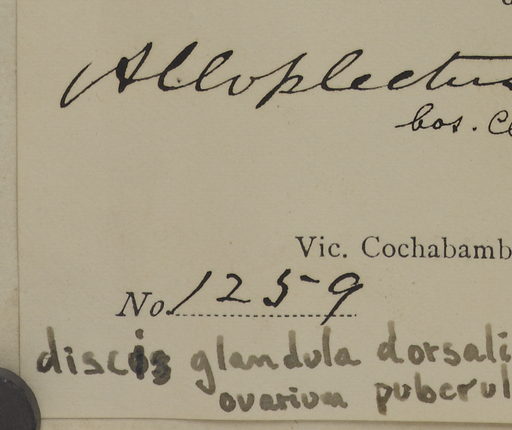 Alloplectus
bos. Cl
Vic. Cochabamb
No. 1259
discis glandula dorsali
ovarium puberul